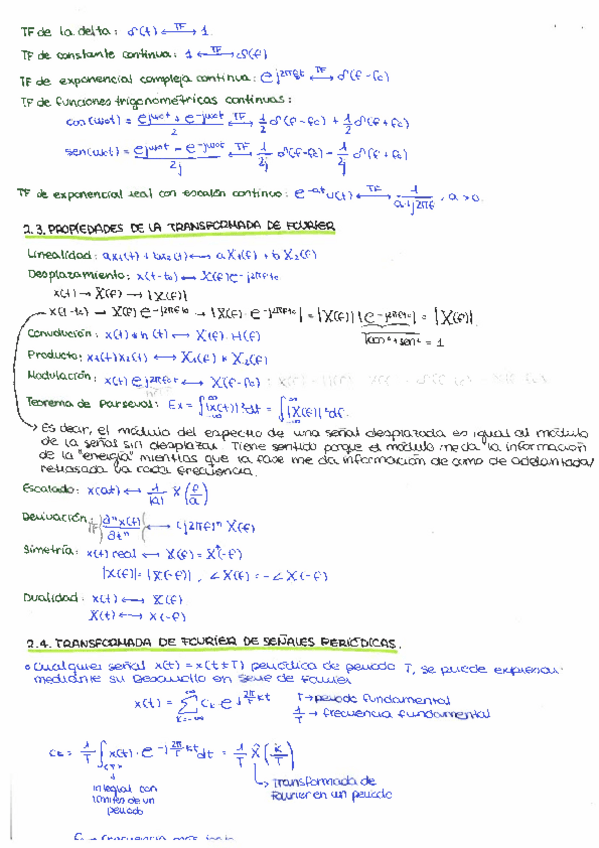 TF de la delta: δ(t) ←TF→ 1.
TF de constante continua: 1 ←TF→ δ(f)
TF de exponencial compleja continua: e^{j2πf_0t} ←TF→ δ(f-f_c)
TF de funciones trigonométricas continuas:
cos(ω_0t) = (e^{jω_0t} + e^{-jω_0t})/2 ←TF→ 1/2 δ(f-f_c) + 1/2 δ(f+f_c)
sen(ω_0t) = (e^{jω_0t} - e^{-jω_0t})/2j ←TF→ 1/2j δ(f-f_c) - 1/2j δ(f+f_c)
TF de exponencial real con escalón continuo: e^{-at}u(t) ←TF→ 1/(a+j2πf), a>0.
2.3. PROPIEDADES DE LA TRANSFORMADA DE FOURIER
Linealidad: ax_1(t) + bx_2(t) ↔ aX_1(f) + bX_2(f)
Desplazamiento: x(t-t_0) ↔ X(f)e^{-j2πft_0}
x(t) → X(f) → |X(f)|
x(t-t_0) → X(f)e^{-j2πft_0} → |X(f)·e^{-j2πft_0}| = |X(f)| |e^{-j2πft_0}| = |X(f)|.
√(cos²+sen²) = 1
Convolución: x(t)*h(t) ↔ X(f)·H(f)
Producto: x_1(t)x_2(t) ↔ X_1(f) * X_2(f)
Modulación: x(t)e^{j2πf_0t} ↔ X(f-f_0)
Teorema de Parseval: Ex = ∫_{-∞}^{∞}|x(t)|²dt = ∫_{-∞}^{∞}|X(f)|²df.
Es decir, el módulo del espectro de una señal desplazada es igual al módulo
de la señal sin desplazar. Tiene sentido porque el módulo me da "la información
de la "energía" mientras que la fase me da información de como de adelantada/
retrasada va cada frecuencia.
Escalado: x(at) ↔ 1/|a| X(f/a)
Derivación: TF{∂^n x(t)/∂t^n} ↔ (j2πf)^n X(f)
Simetría: x(t) real ↔ X(f) = X*(-f)
|X(f)| = |X(-f)|, ∠X(f) = -∠X(-f)
Dualidad: x(t) ↔ X(f)
X(t) ↔ x(-f)
2.4. TRANSFORMADA DE FOURIER DE SEÑALES PERIÓDICAS.
Cualquier señal x(t) = x(t±T) periódica de periodo T, se puede expresar
mediante su Desarrollo en Serie de Fourier
x(t) = Σ_{k=-∞}^{∞} C_k e^{j 2π/T kt} T → periodo fundamental
1/T → frecuencia fundamental
C_k = 1/T ∫_{<T>} x(t)·e^{-j 2π/T kt}dt = 1/T X̂(k/T)
integral con
límites de un
periodo
Transformada de
Fourier en un periodo